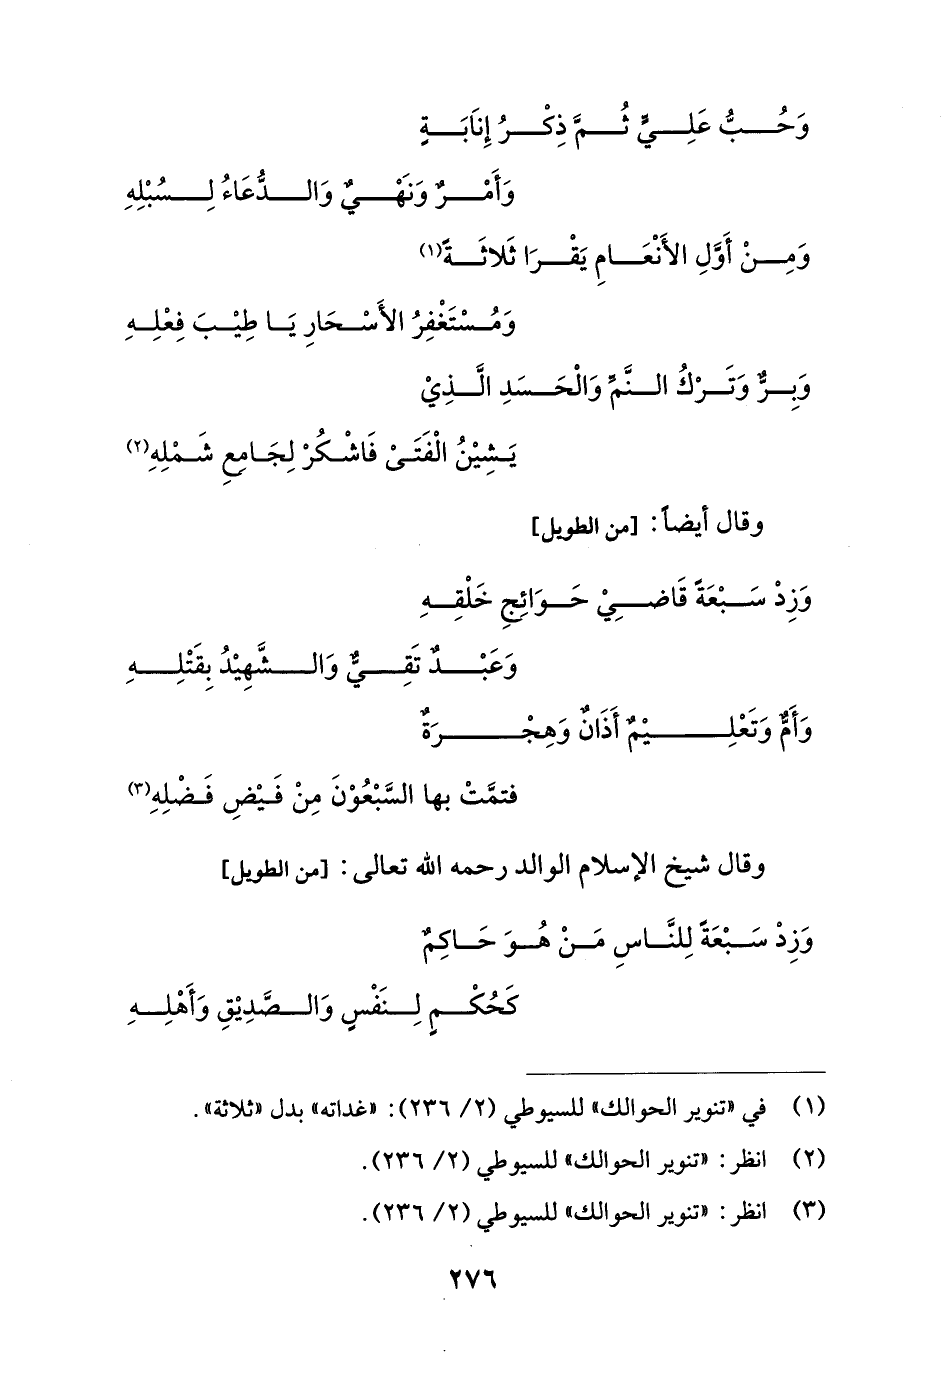 وَحُبُّ عَلِيٍّ ثُمَّ ذِكْرُ إِنَابَةٍ
وَأَمْرٌ وَنَهْيٌ وَالدُّعَاءُ لِسُبْلِهِ
وَمِنْ أَوَّلِ الأَنْعَامِ يَقْرَا ثَلاثَةً(١)
وَمُسْتَغْفِرُ الأَسْحَارِ يَا طِيْبَ فِعْلِهِ
وَبِرٌّ وَتَرْكُ النَّمِّ وَالْحَسَدِ الَّذِيْ
يَشِيْنُ الْفَتَىْ فَاشْكُرْ لِجَامِعِ شَمْلِهِ(٢)
وقال أيضاً: [من الطويل]
وَزِدْ سَبْعَةً قَاضِيْ حَوَائِجِ خَلْقِهِ
وَعَبْدٌ تَقِيٌّ وَالشَّهِيْدُ بِقَتْلِهِ
وَأَمٌّ وَتَعْلِيْمٌ أَذَانٌ وَهِجْرَةٌ
فتمَّتْ بها السَّبْعُوْنَ مِنْ فَيْضِ فَضْلِهِ(٣)
وقال شيخ الإسلام الوالد رحمه الله تعالى: [من الطويل]
وَزِدْ سَبْعَةً لِلنَّاسِ مَنْ هُوَ حَاكِمٌ
كَحُكْمٍ لِنَفْسٍ وَالصَّدِيْقِ وَأَهْلِهِ
(١) في «تنوير الحوالك» للسيوطي (٢/ ٢٣٦): «غداته» بدل «ثلاثة».
(٢) انظر: «تنوير الحوالك» للسيوطي (٢/ ٢٣٦).
(٣) انظر: «تنوير الحوالك» للسيوطي (٢/ ٢٣٦).
٢٧٦